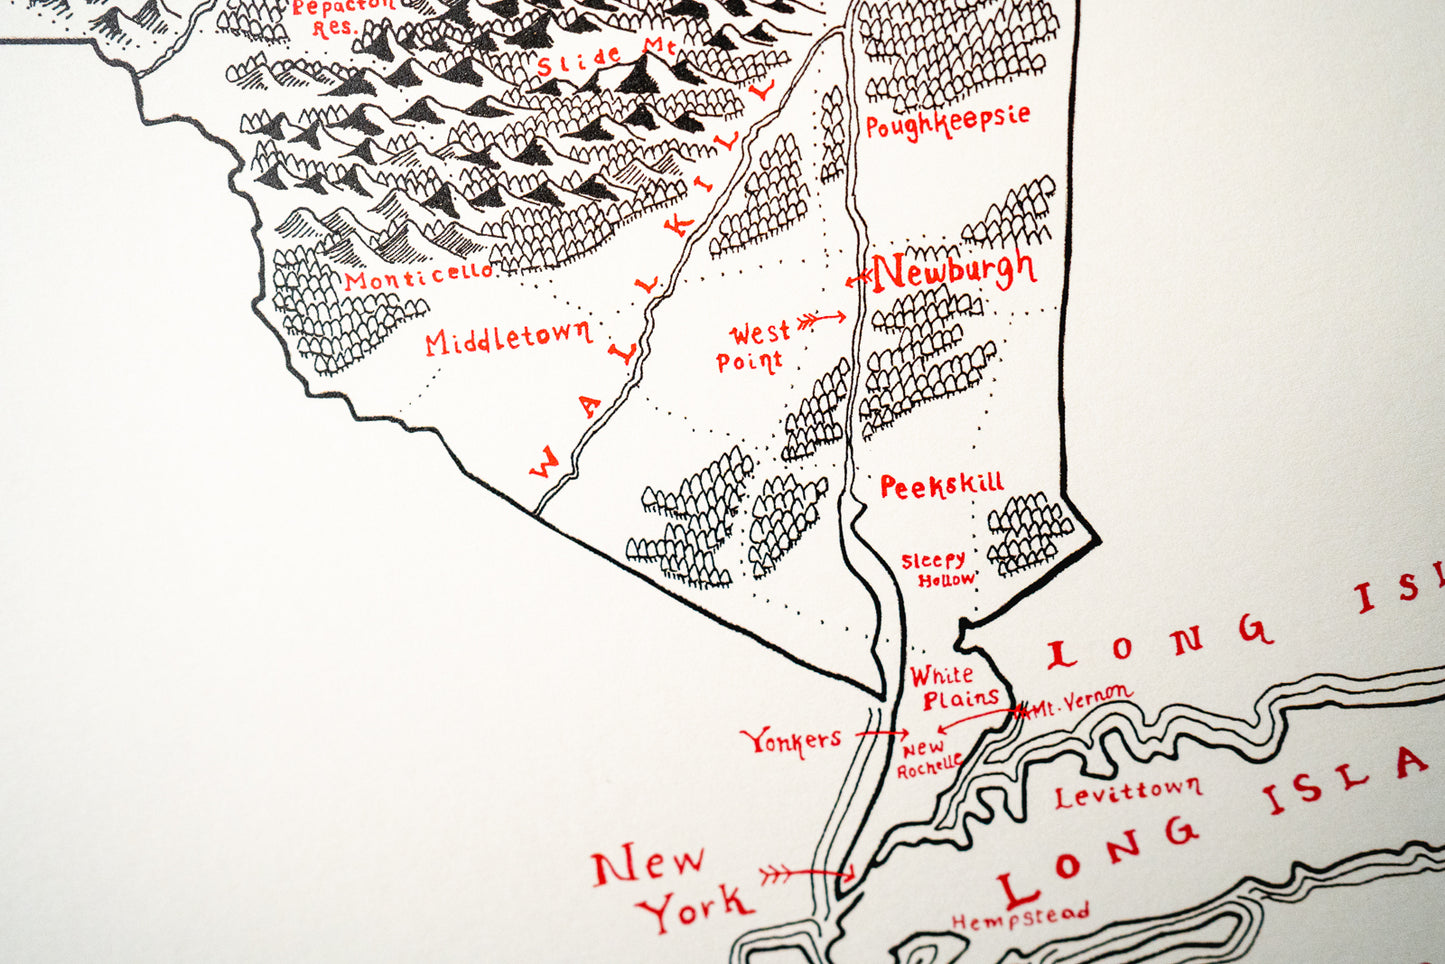 Pepacton
Res.
Slide Mt
Poughkeepsie
WALLKILL
Monticello
Newburgh
Middletown
West
Point
Peekskill
Sleepy
Hollow
LONG
White
Plains
Mt. Vernon
Yonkers
New
Rochelle
Levittown
LONG ISLA
New
York
Hempstead